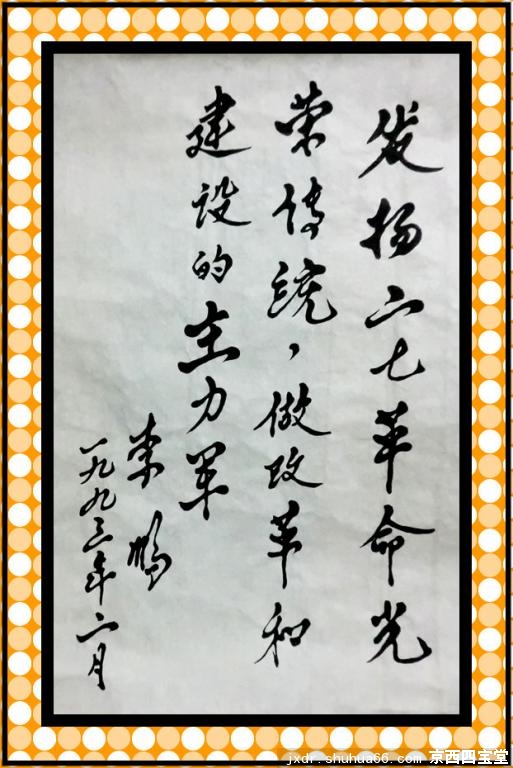 发扬二七革命光
荣传统，做改革和
建设的主力军
李鹏
一九九三年二月
jxdr.shuhua66.com 京西四宝堂